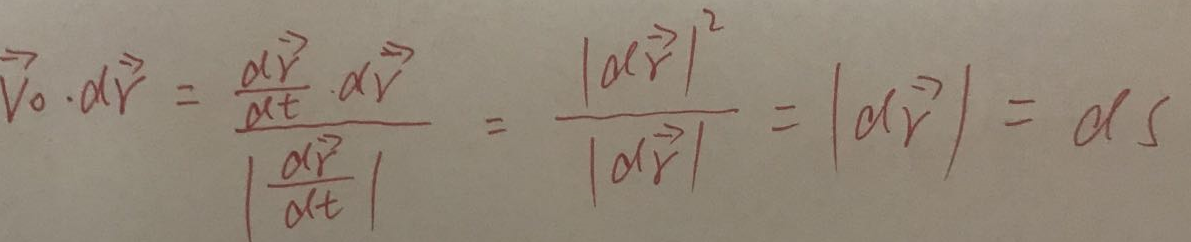 $\vec{V}_0 \cdot d\vec{r} = \frac{\frac{d\vec{r}}{dt} \cdot d\vec{r}}{\left|\frac{d\vec{r}}{dt}\right|} = \frac{|d\vec{r}|^2}{|d\vec{r}|} = |d\vec{r}| = ds$